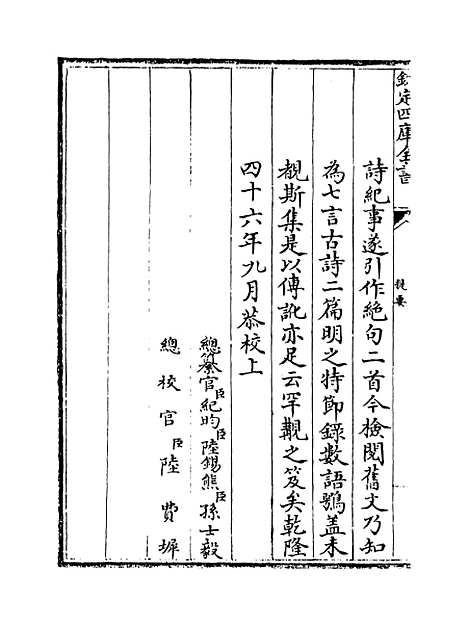 欽定四庫全書
提要
詩紀事遂引作絶句二首今檢閲舊文乃知
為七言古詩二篇明之特節錄數語鶚盖未
覩斯集是以傳訛亦足云罕覯之笈矣乾隆
四十六年九月恭校上
總纂官臣紀昀臣陸錫熊臣孫士毅
總校官臣陸費墀